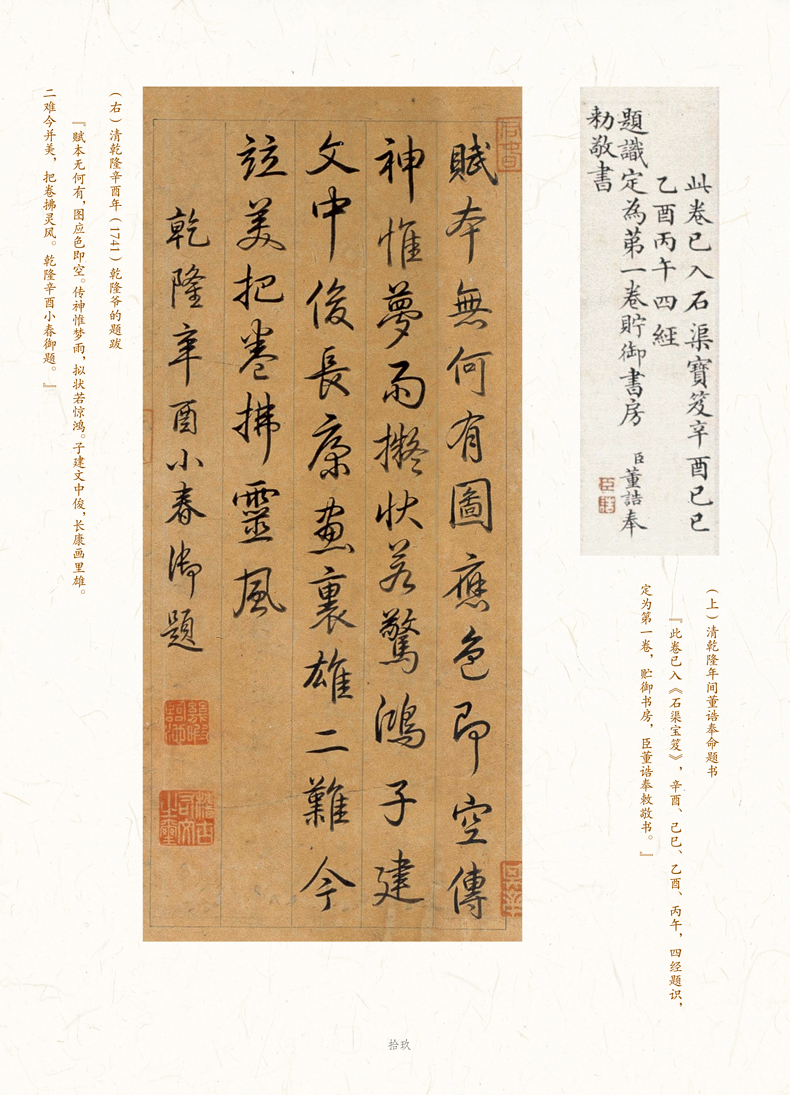 此卷已入石渠寶笈辛酉己巳
乙酉丙午四經
題識定為第一卷貯御書房
臣董誥奉
勑敬書
(上)清乾隆年间董诰奉命题书
『此卷已入《石渠宝笈》,辛酉、己巳、乙酉、丙午,四经题识,
定为第一卷,贮御书房,臣董诰奉敕敬书。』
賦本無何有圖應色即空傳
神惟夢雨擬狀若驚鴻子建
文中俊長康畫裏雄二難今
竝美把卷拂靈風
乾隆辛酉小春御題
(右)清乾隆辛酉年(1741)乾隆爷的题跋
『赋本无何有,图应色即空。传神惟梦雨,拟状若惊鸿。子建文中俊,长康画里雄。
二难今并美,把卷拂灵风。乾隆辛酉小春御题。』
拾玖